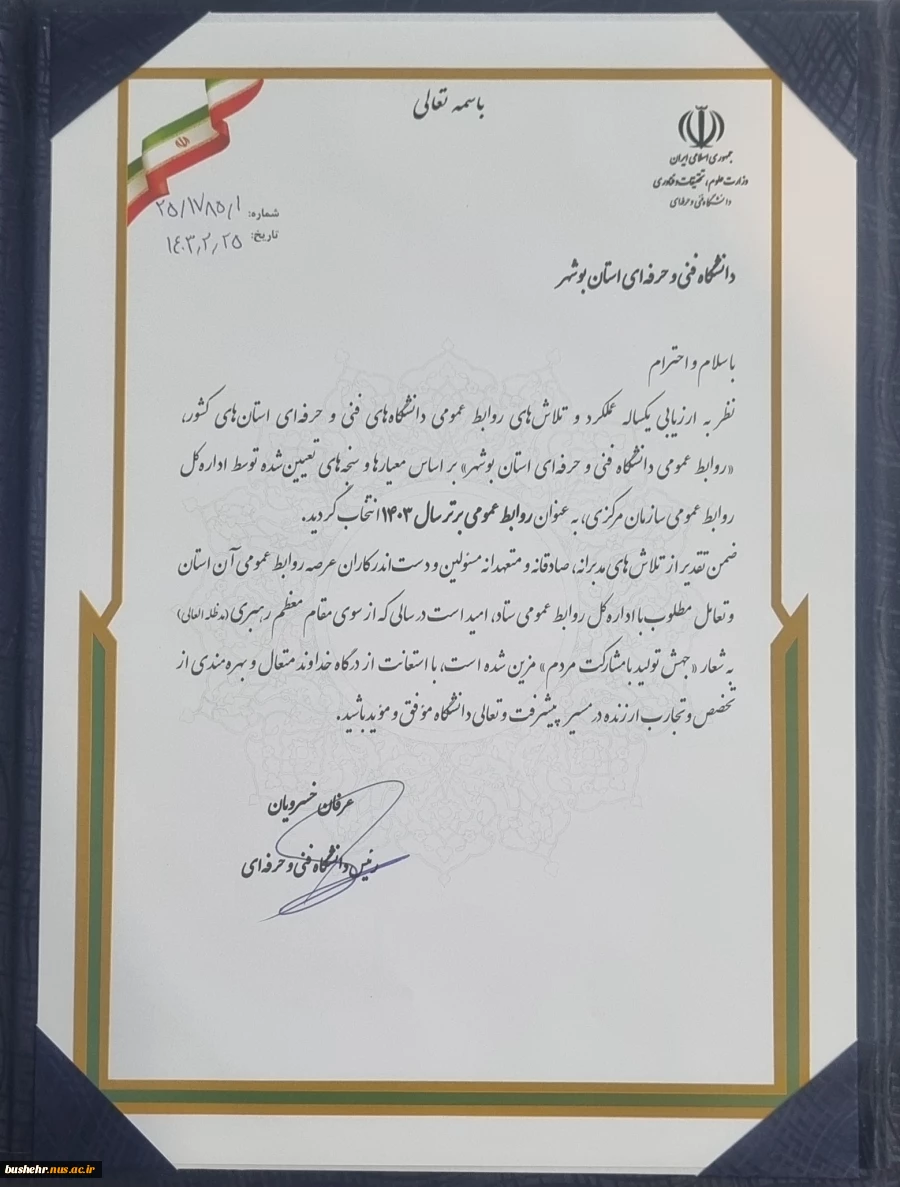 باسمه تعالی
جمهوری اسلامی ایران
وزارت علوم، تحقیقات و فناوری
دانشگاه فنی و حرفه‌ای
شماره: ۲۵/۱۷۸۵/۱
تاریخ: ۱۴۰۳٫۲٫۲۵
دانشگاه فنی و حرفه‌ای استان بوشهر
با سلام و احترام
نظر به ارزیابی یکساله عملکرد و تلاش‌های روابط عمومی دانشگاه‌های فنی و حرفه‌ای استان‌های کشور،
«روابط عمومی دانشگاه فنی و حرفه‌ای استان بوشهر» بر اساس معیارها و سنجه‌های تعیین‌شده توسط اداره‌کل
روابط عمومی سازمان مرکزی، به عنوان روابط عمومی برتر سال ۱۴۰۳ انتخاب گردید.
ضمن تقدیر از تلاش‌های مدبرانه، صادقانه و متعهدانه مسئولین و دست‌اندرکاران عرصه روابط عمومی آن استان
و تعامل مطلوب با اداره‌کل روابط عمومی ستاد، امید است در سالی که از سوی مقام معظم رهبری (مدظله العالی)
به شعار «جهش تولید با مشارکت مردم» مزین شده است، با استعانت از درگاه خداوند متعال و بهره‌مندی از
تخصص و تجارب ارزنده در مسیر پیشرفت و تعالی دانشگاه موفق و مؤید باشید.
عرفان خسرویان
رئیس دانشگاه فنی و حرفه‌ای
bushehr.nus.ac.ir